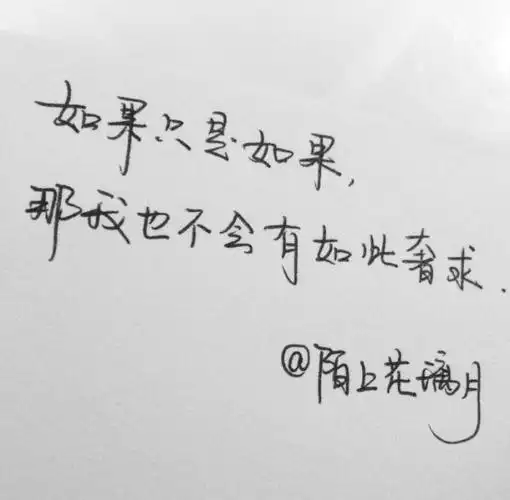 如果只是如果,
那我也不会有如此奢求.
@陌上花璃月